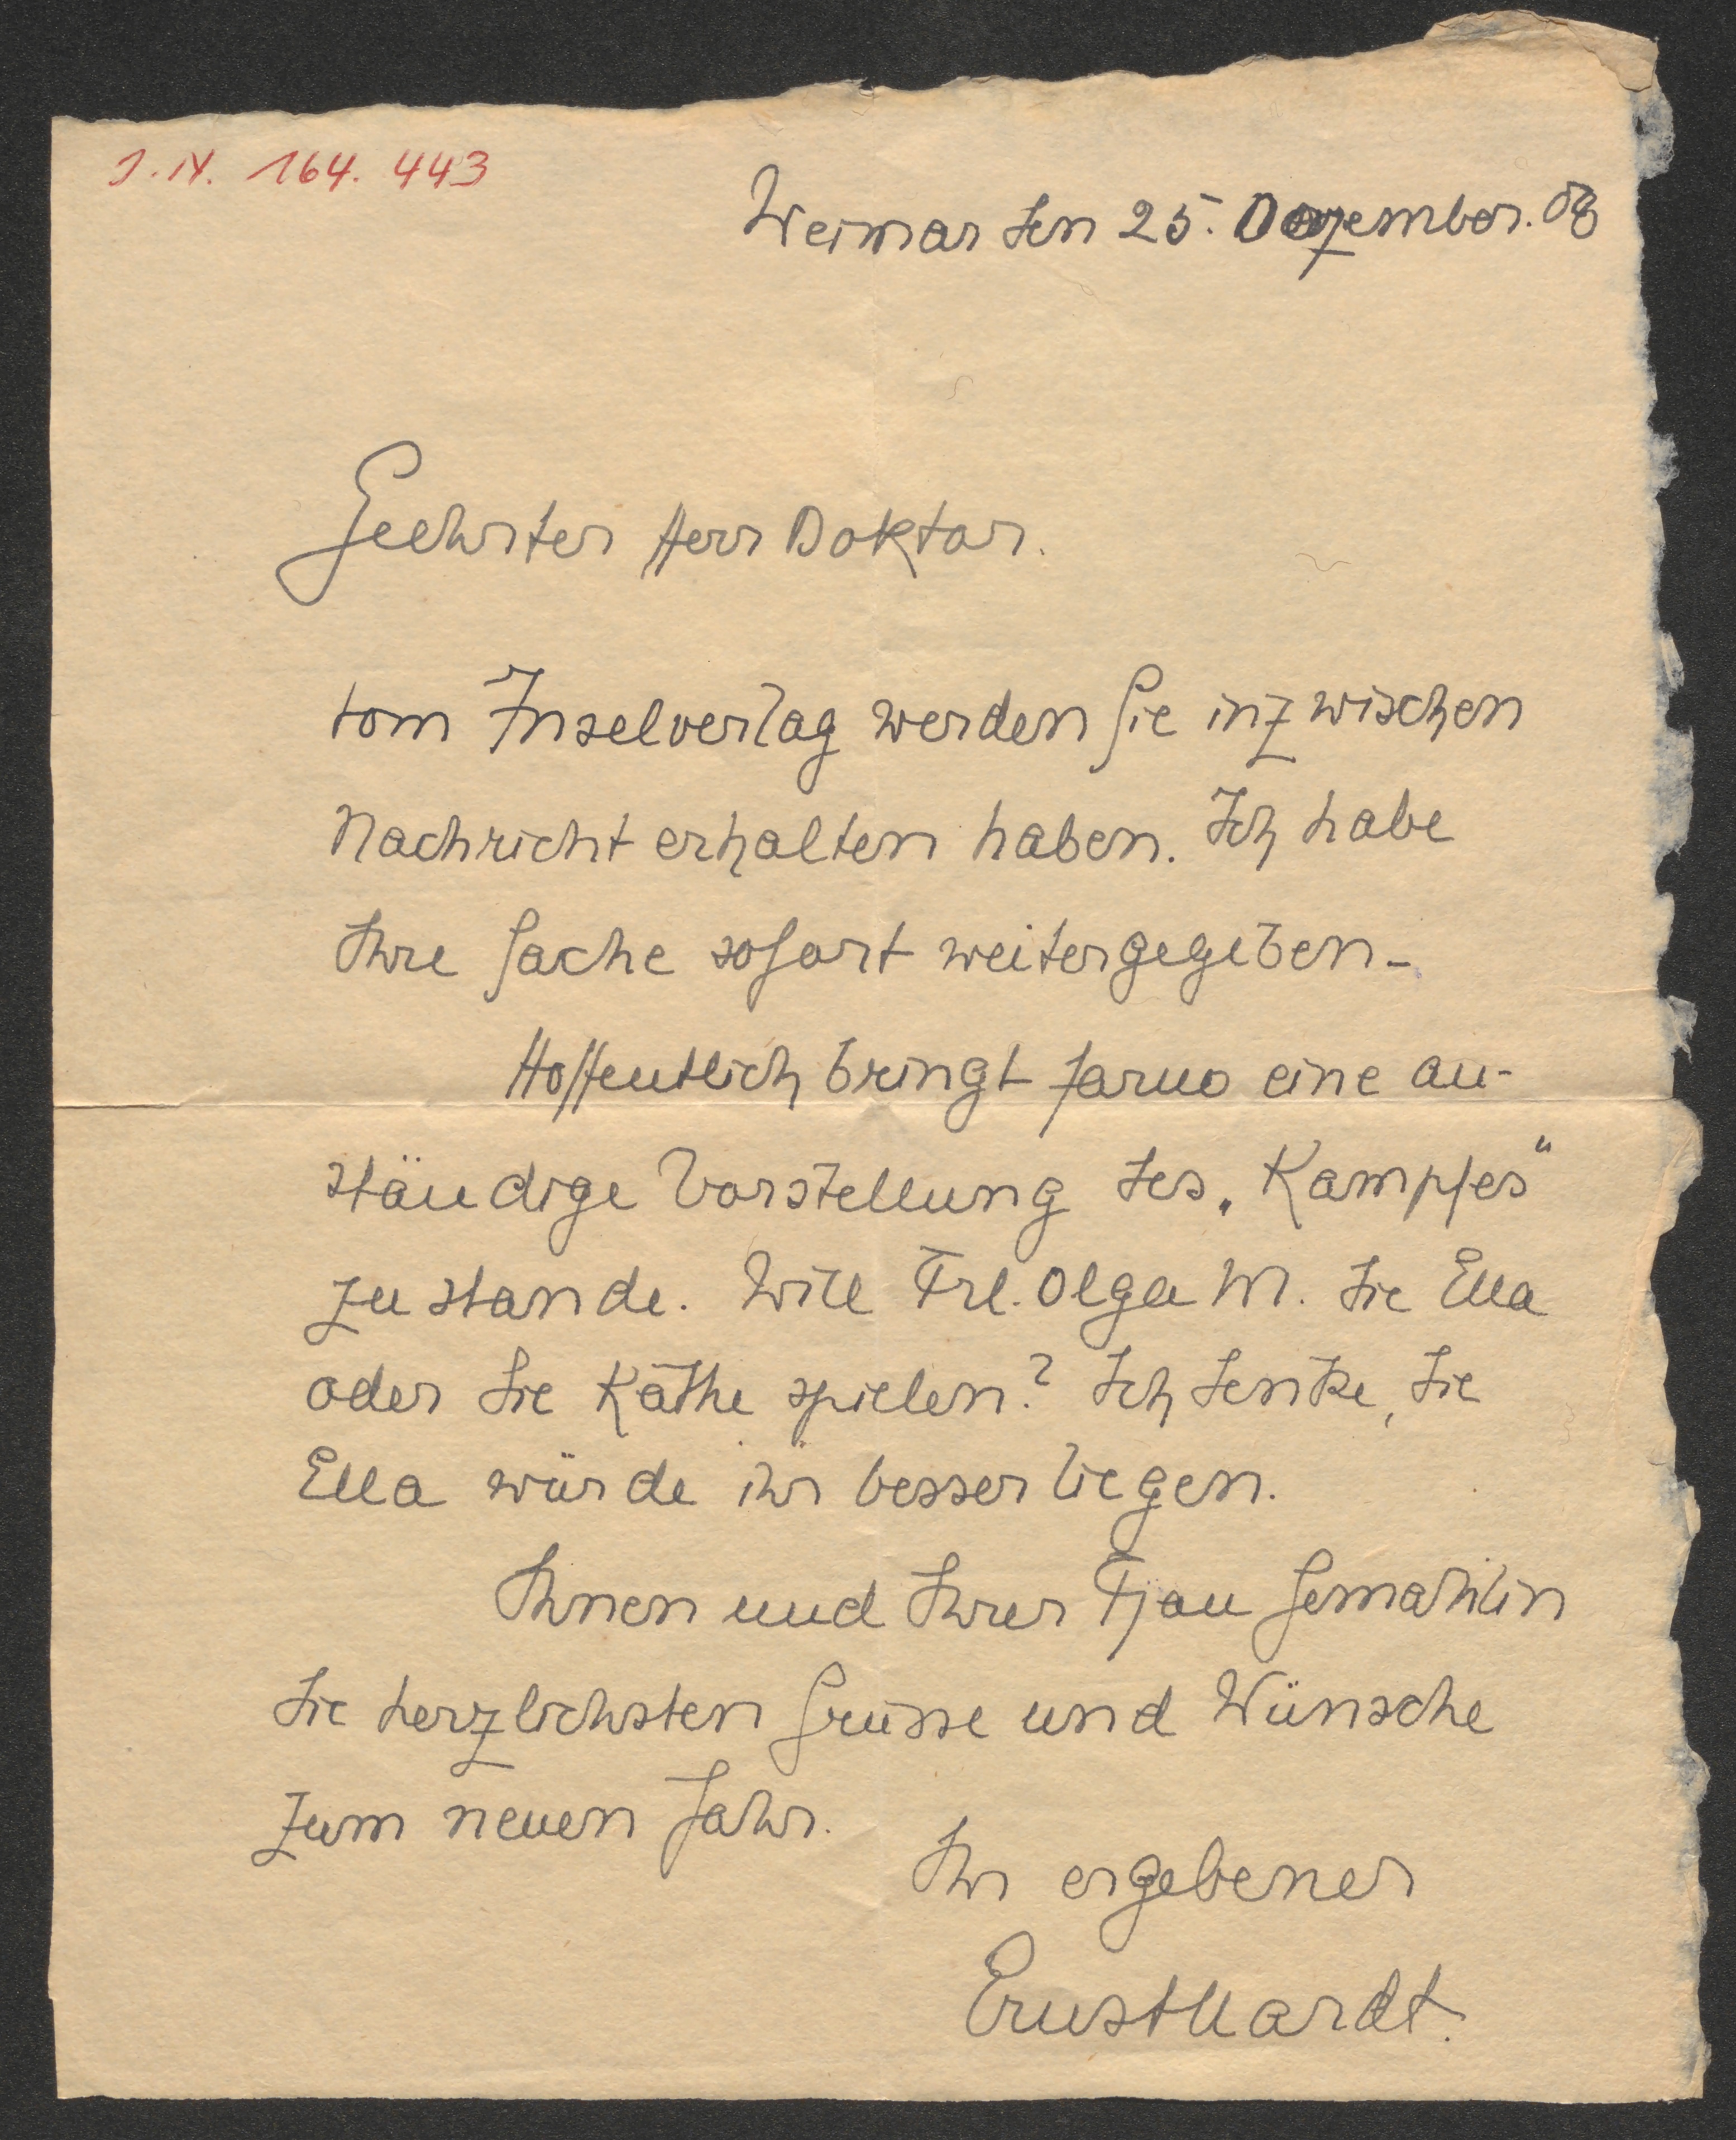 J.N. 164.443
Weimar den 25. Dezember. 08
Geehrter Herr Doktor.
vom Inselverlag werden Sie inzwischen
Nachricht erhalten haben. Ich habe
Ihre Sache sofort weitergegeben-
Hoffentlich bringt Jarno eine an-
ständige Vorstellung des „Kampfes“
zustande. Will Frl. Olga M. die Ella
oder die Käthe spielen? Ich denke, die
Ella würde ihr besser liegen.
Ihnen und Ihrer Frau Gemahlin
die herzlichsten Grüsse und Wünsche
zum neuen Jahr.
Ihr ergebener
Ernst Hardt.